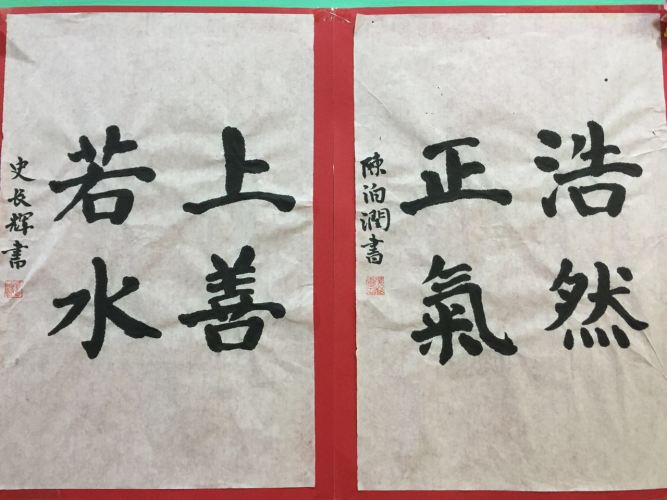 浩然
正氣
陳泊潤書
上善
若水
史長輝書